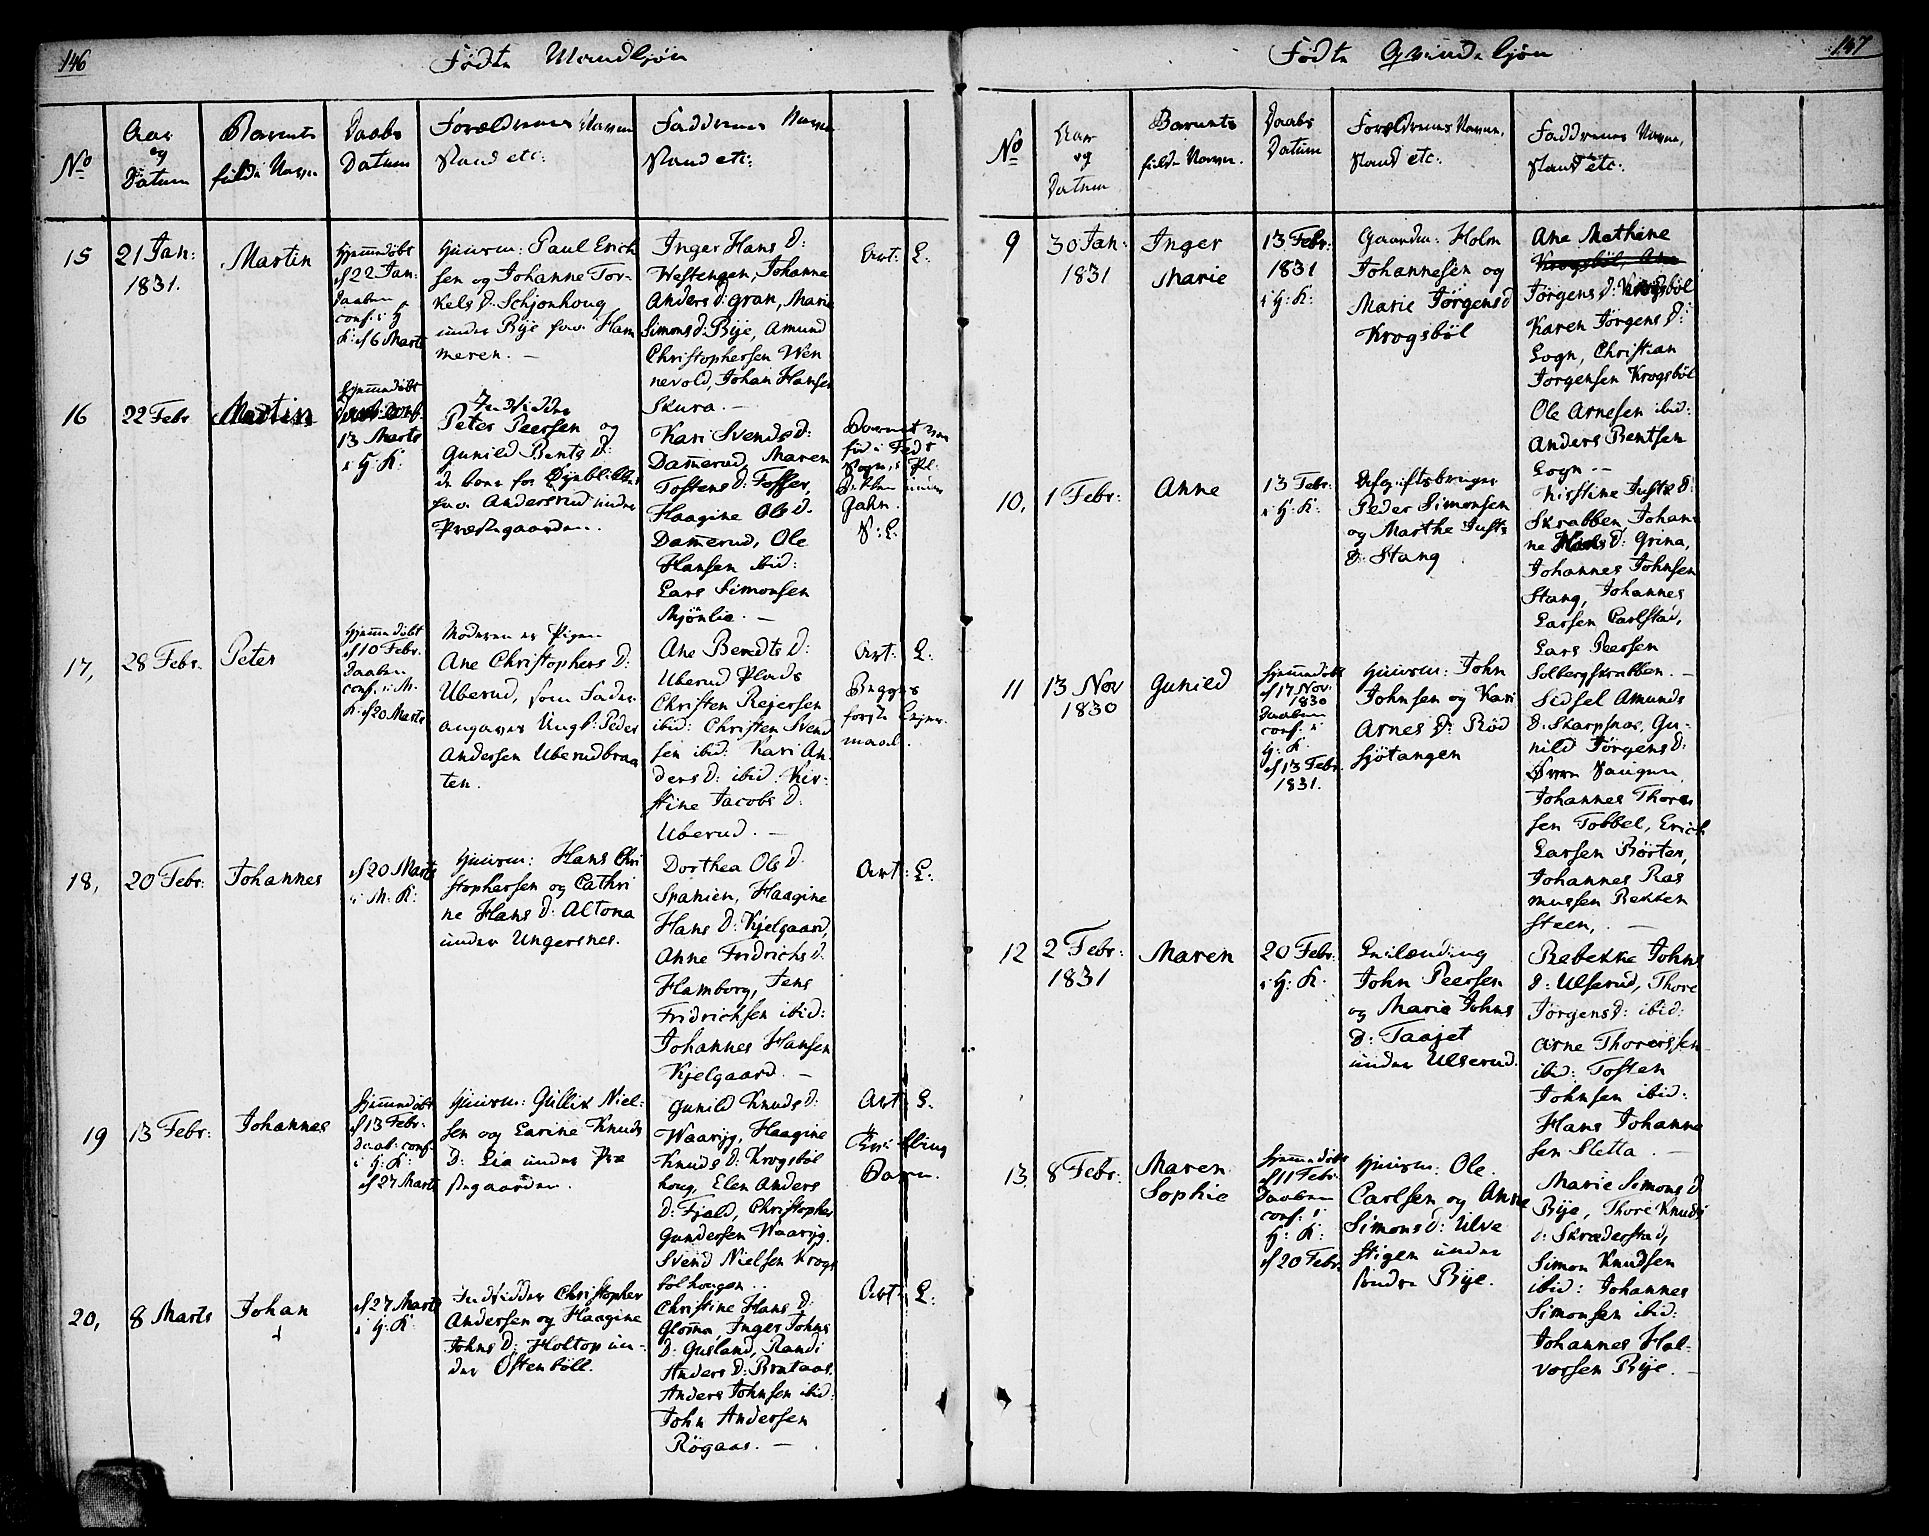 146
Fødte Mandkjøn
No
Aar
og
Datum
Barnets
fulde Navn
Daabs
Datum
Forældrenes Navn
Stand etc:
Faddernes Navn
Stand etc:
15
21 Jan:
1831.
Martin
Hjemmedøbt
d 22 Jan:
Daaben
conf: i H
K: d 6 Marts
Huusm: Paul Erich
sen og Johanne Tor-
kels D: Schjønhoug
under Bÿe paa Ham
meren. —
Inger Hans D:
Westengen, Johanne
Anders D: Gran, Marie
Simons D: Bÿe, Amund
Christophersen Wen
nevold, Johan Hansen
Skura. —
Art: L.
16
22 Febr
Martin
Hjemmedøbt
Daab. Conf.
13 Marts
i H: K:
Inderster
Peter Peersen og
Gunild Bents D:
paa Andersrud under
Præstegaarden.
Kari Svends D:
Damerud, Maren
Tostens D: Fosser,
Haagine Ols D.
Damerud, Ole
Hansen ibid:
Lars Simonsen
Mjönlie. —
Barnet er
fød i Fedt
Sogn, i Pl:
under
N: L.
17,
28 Febr.
Peter
Hjemmedøbt
d 10 Febr.
Daaben
conf: i M.
K: d 20 Marts
Moderen er Pigen
Ane Christophers D:
Uberud, som Fader
angaves Ungk: Peder
Andersen Uberudbraa
ten.
Ane Bendts D:
Uberud Plads
Christen Rejersen
ibid: Christen Svend
sen ibid: Kari An
ders D: ibid: Kir-
stine Jacobs D:
Uberud. —
Art: L.
Begges
første Lejer-
maal.
18,
20 Febr:
Johannes
d 20 Marts
i M: K:
Huusm: Hans Chri
stophersen og Cathri
ne Hans D: Altona
under Ungersnes.
Dorthea Ols D.
Spanien, Haagine
Hans D: Kjelgaard,
Anne Fridrichs D.
Hamborg, Jens
Fridrichsen ibid:
Johannes Hansen
Kjelgaard. —
Art: L.
19
13 Febr:
Johannes
Hjemmedøbt
d 13 Febr.
Daab: conf.
i H: K:
d 27 Marts
Huusm: Gullik Niel-
sen og Karine Knuds
D: Lia under Præ
stegaarden.
Gunild Knuds D:
Waarÿg, Haagine
Knuds D: Krogsböl
houg, Elen Anders
D: Fjeld, Christopher
Gundersen Waarÿg.
Svend Nielsen Krogs
bölhougen.
Art: L.
Tvilling
Barn.
20,
8 Marts
Johan
d 27 Marts
i H: K:
Inderster Christopher
Andersen og Haagine
Johns D: Holtop un-
der Østenböll.
Christine Hans D:
Gloma, Inger Johns
D: Gusland, Randi
Anders D: Brataas,
Anders Johnsen ibid:
John Andersen
Rögaas. —
Art: L.
147
Fødte Qvindekjøn
No
Aar
og
Datum
Barnets
fulde Navn.
Daabs
Datum
Forældrenes Navne,
Stand etc:
Faddernes Navne,
Stand etc:
9
30 Jan:
1831
Inger
Marie
13 Febr:
1831
i H: K:
Gaardm: Holm
Johannesen og
Marie Jörgens D
Krogsböl
Ane Mathine
Krogsböl, Ane
Jörgens D: Krogsböl
Karen Jörgens D:
Sogn, Christian
Jörgensen Krogsböl
Ole Arnesen ibid:
Anders Bentsen
Sogn. —
10,
1 Febr:
Anne
13 Febr:
i H: K:
Peder Simonsen
og Marthe Justs
D: Stang
Kirstine Justs D:
Skrabben, Johan
ne Hans D: Grina,
Johannes Johnsen
Stang, Johannes
Larsen Carlstad,
Lars Peersen
Solbergskrabben. —
11
13 Nov
1830
Gunild
Hjemmedøbt
d 17 Nov:
1830
Daaben
conf: i
H: K:
d 13 Febr.
1831.
Huusm: John
Johnsen og Kari
Arnes D: Röd
sjötangen
Sidsel Amunds
D: Skarpsnas, Gu-
nild Jörgens D:
Johannes Thores
sen Tobbel, Erich
Larsen Börten,
Johannes Ras
mussen Bekken
steen, —
12
2 Febr:
1831
Maren
20 Febr:
i H: K.
John Peersen
og Marie Johns
D: Taajet
under Ulserud.
Rebekke Johns
D: Ulserud, Thore
Jörgens D: ibid:
Arne Thoressen
ibid: Tosten
Johnsen ibid:
Hans Johanne
sen Sletta. —
13
8 Febr.
Maren
Sophie
Hjemmedøbt
d 11 Febr.
Daaben
conf: i
H: K:
d 20 Febr.
Huusm: Ole
Carlsen og Anne
Simons D: Ulve
stigen under
søndre Bÿe.
Marie Simons D
Bÿe, Thore Knuds
D: Skræderstad,
Simon Knudsen
ibid: Johannes
Simonsen ibid:
Johannes Hal-
vorsen Bÿe. —